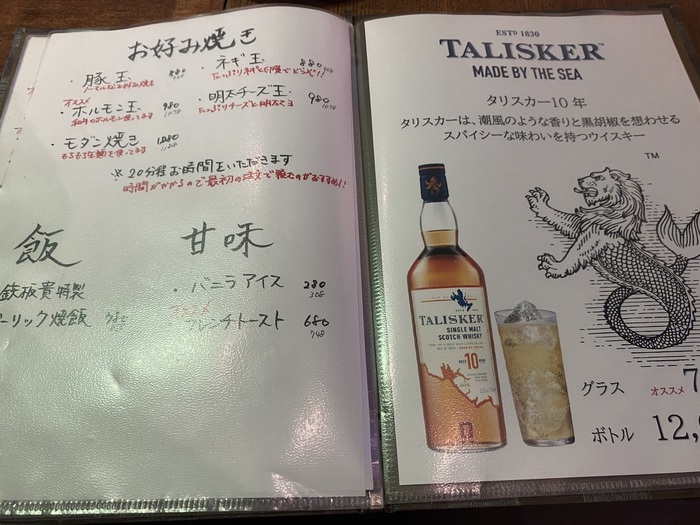 お好み焼き
・豚玉 880
ノーマルなお好み焼き
・ネギ玉 880
たっぷりネギと
オススメ
・ホルモン玉 980
和牛のホルモン使ってます
・明太チーズ玉 980
たっぷりチーズと明太
・モダン焼き 1,080
もちもち生麺を使ってます
※20分程お時間をいただきます
時間がかかるので最初の注文で頼むのがおすすめ!
飯
鉄板貴特製
ーリック焼飯 780
甘味
・バニラアイス 280
308
ンチトースト 680
748
ESTD 1830
TALISKER
MADE BY THE SEA
タリスカー10年
タリスカーは、潮風のような香りと黒胡椒を想わせる
スパイシーな味わいを持つウイスキー
TM
TALISKER
SINGLE MALT
SCOTCH WHISKY
AGED 10 YEARS
グラス オススメ 7
ボトル 12,